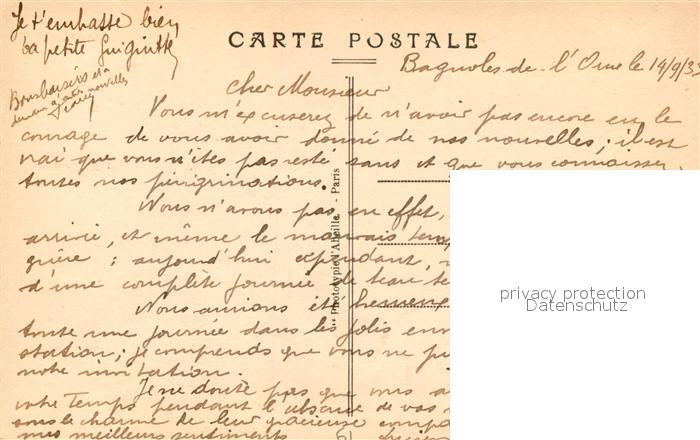 Je t'embrasse bien
ta petite
CARTE POSTALE
Bagnoles-de-l'Orne le 14/9/33
Bons baisers et à
demain d'autres nouvelles
Cher Monsieur
Vous m'excuserez de n'avoir pas encore eu le
courage de vous avoir donné de nos nouvelles; il est
vrai que vous n'êtes pas resté sans et que vous connaissez
toutes nos pérégrinations.
Nous n'avons pas en effet,
arrivé, et même le mauvais
guère; aujourd'hui cependant,
d'une complète journée de beau
Nous aurions été
toute une journée dans les jolis
station; je comprends que vous ne
notre invitation.
Je ne doute pas que vous
votre temps pendant l'absence de vos
sous le charme de leur gracieuse
mes meilleurs sentiments
Phototypie d'Abeille - Paris
privacy protection
Datenschutz